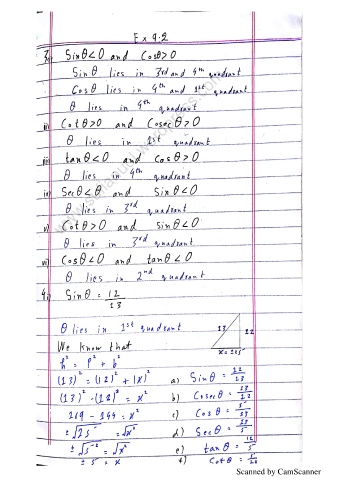 Ex 9.2
3. i) Sinθ<0 and Cosθ>0
Sinθ lies in 3rd and 4th quadrant
Cosθ lies in 4th and 1st quadrant
θ lies in 4th quadrant
ii) Cotθ>0 and Cosecθ>0
θ lies in 1st quadrant
iii) tanθ<0 and cosθ>0
θ lies in 4th quadrant
iv) Secθ<θ and Sinθ<0
θ lies in 3rd quadrant
v) Cotθ>0 and Sinθ<0
θ lies in 3rd quadrant
vi) Cosθ<0 and tanθ<0
θ lies in 2nd quadrant
4. i) Sinθ = 12/13
θ lies in 1st quadrant
13 12
x=±5
We know that
h² = p² + b²
(13)² = (12)² + (x)² a) Sinθ = 12/13
(13)² - (12)² = x² b) Cosecθ = 13/12
169 - 144 = x² c) Cosθ = 5/13
±√25 = √x² d) Secθ = 13/5
±√5² = √x² e) tanθ = 12/5
± 5 = x f) Cotθ = 5/12
Scanned by CamScanner